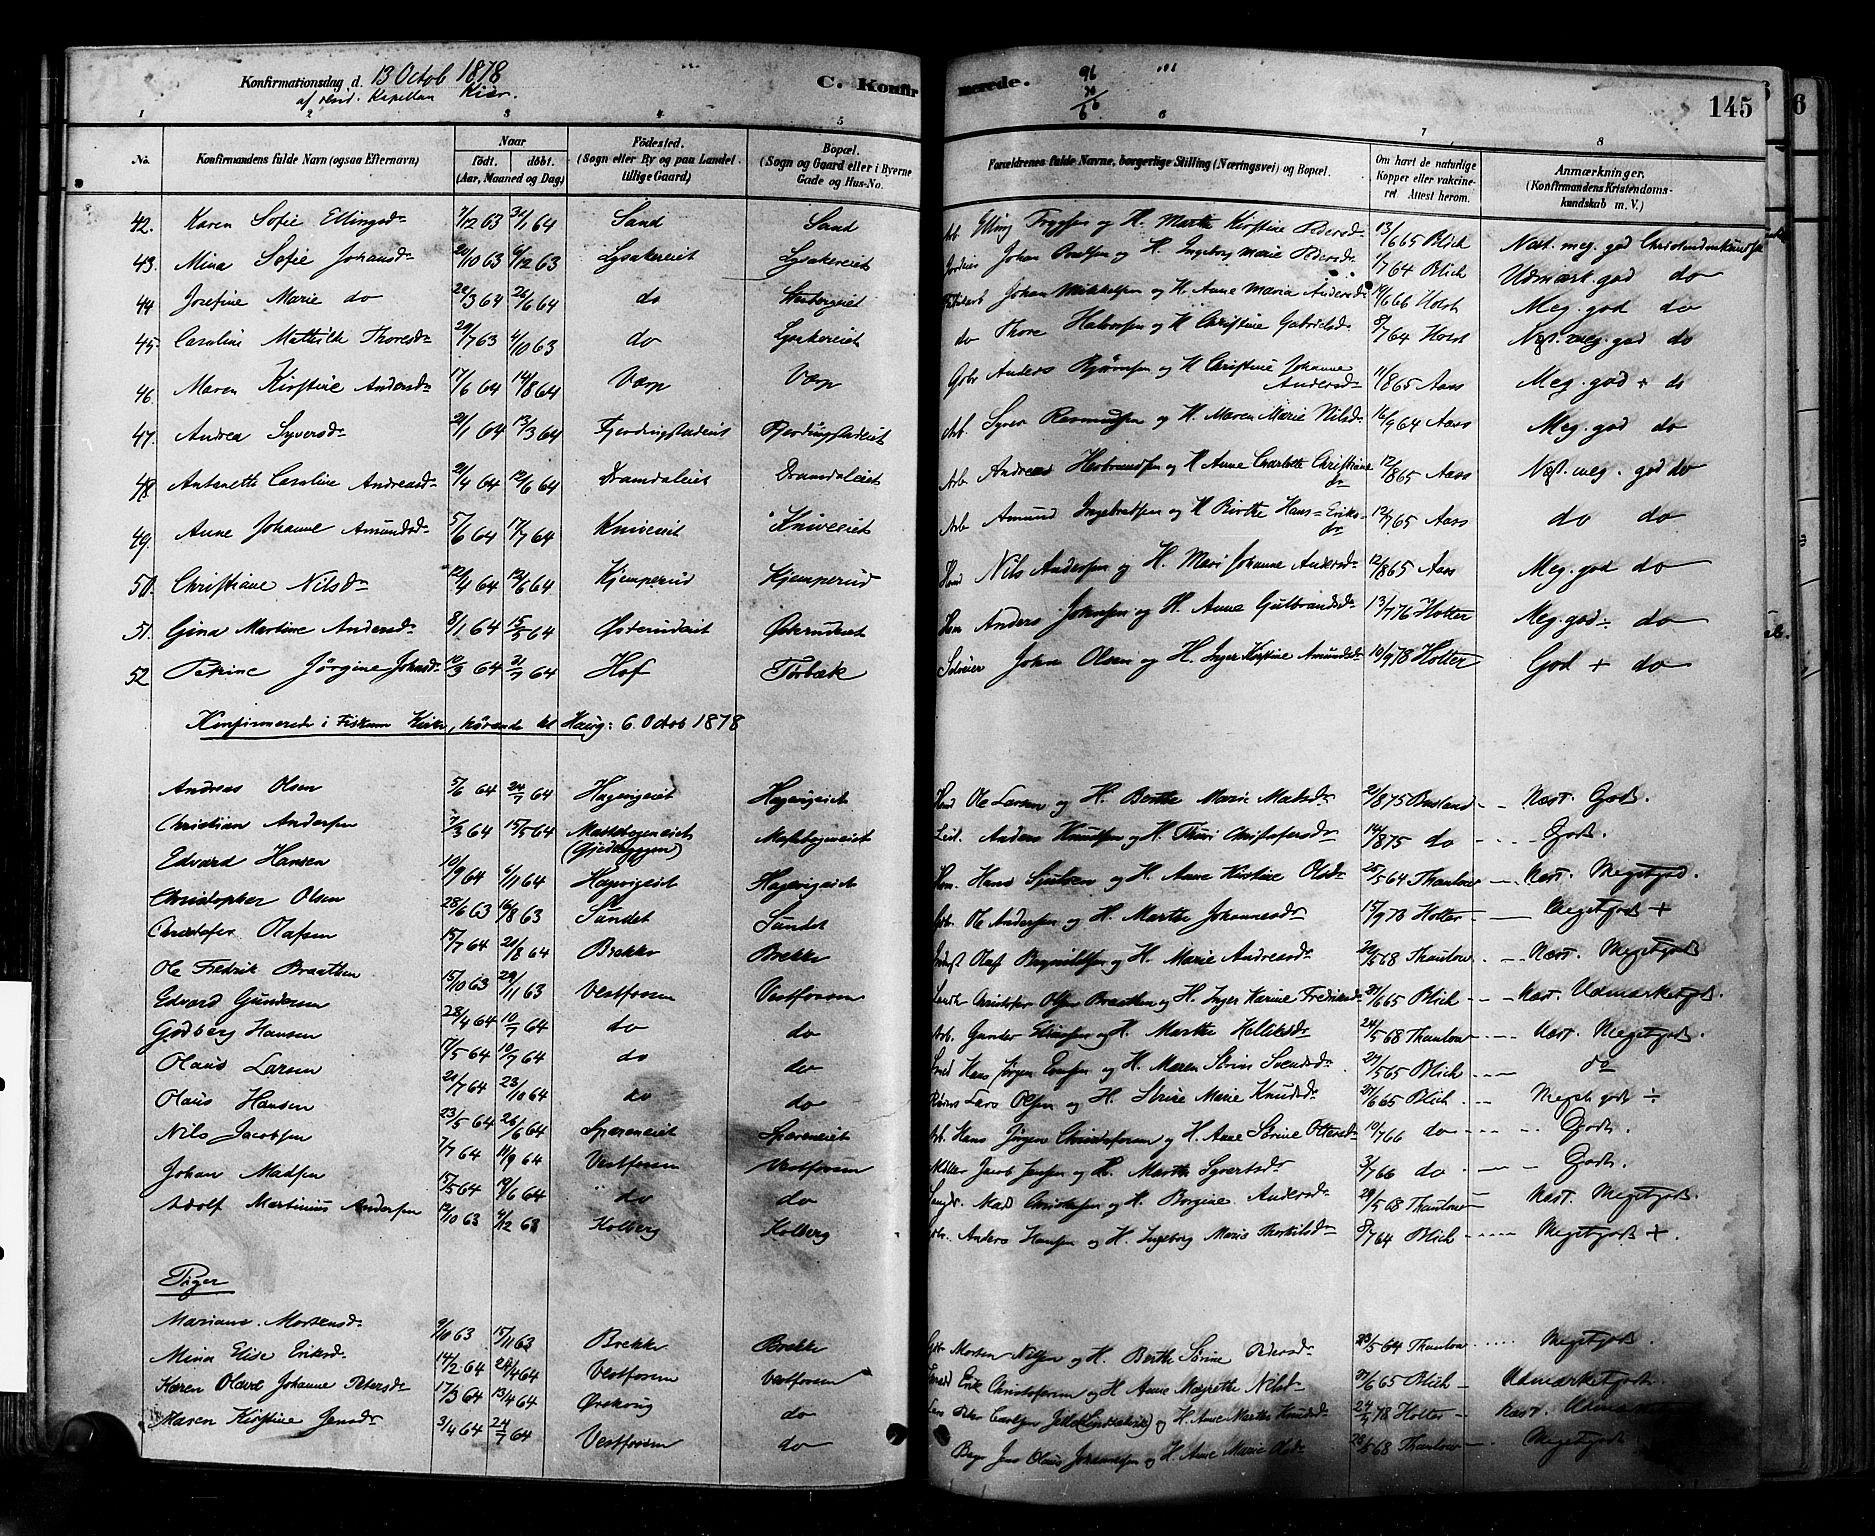 Konfirmationsdag d. 13 Octob 1878
af resid. Kapellan Kiær.
C. Konfirmerede.
96
145
6
1 2 3 4 5 6 7 8
No. Konfirmandens fulde Navn (ogsaa Efternavn) Naar født. døbt. (Aar, Maaned og Dag) Fødested. (Sogn eller By og paa Landet tillige Gaard) Bopæl. (Sogn og Gaard eller i Byerne Gade og Hus-No. Forældrenes fulde Navne, borgerlige Stilling (Næringsvei) og Bopæl. Om havt de naturlige Kopper eller vakcineret. Attest herom. Anmærkninger. (Konfirmandens Kristendomskundskab m. V.)
42. Karen Sofie Ellingsdr 7/12 63 31/1 64 Sand Sand Arb. Elling Trygsen og H. Marthe Kirstine Pedersdr 13/6 65 Blich Næst. meg. god Christendomskundsk
43. Mina Sofie Johansdr 20/10 63 6/12 63 Lysakereiet Lysakereiet Johan Poulsen og H. Ingeborg Marie Pedersdr 1/7 64 Blich Udmærk. god do
44 Josefine Marie do 22/3 64 21/6 64 do Johan Mikkelsen og H. Anne Maria Andersdr 14/6 66 Holst Meg. god do
45. Caroline Mathilde Thoresdr 29/7 63 4/10 63 do Lysakereiet do Thore Halvorsen og H Christine Gabrielsd. 8/7 64 Holst Næst. meg. god do
46. Maren Kirstine Andersdr 17/6 64 14/8 64 Værp Værp Gbr Anders Bjørnsen og H Christine Johanne Andersdr 11/8 65 Aass Meg. god + do
47. Andrea Syversdr 21/1 64 13/3 64 Fjerdingstadeiet Fjerdingstadeiet Arb. Syver Rasmussen og H Maren Marie Nilsd. 16/9 64 Aass Meg. god do
48 Antonette Caroline Andreasdr 21/4 64 12/6 64 Dramdaleiet Dramdaleiet Arb Andreas Herbrandsen og H Anne Charlotte Christiane dr 12/8 65 Aass Næst. meg. god do
49. Anne Johanne Amundsdr 5/6 64 17/7 64 Kniveeiet Kniveeiet Arb Amund Ingebretsen og H Birthe Hans= Eriksdr 12/7 65 Aass do do
50. Christiane Nilsdr 12/4 64 12/6 64 Kjemperud Kjemperud Hmd Nils Andersen og H. Mari Johanne Andersdr 12/8 65 Aass Meg. god do
51. Gina Martine Andersdr 8/1 64 15/5 64 Østerudeiet Østerudeiet Hm Anders Johnsen og H. Anne Gulbrandsdr 13/7 76 Holter Meg. god ÷ do
52 Petrine Jørgine Johnsdr 10/3 64 31/7 64 Hof Torbæk Selveier John Olsen og H. Inger Kirstine Amundsdr 10/9 78 Holter God + do
Konfirmerede i Fiskum Kirke, hørende til Haug: 6. Octob 1878
Andreas Olsen 5/6 64 24/7 64 Hagavigeiet Hagavigeiet Hmd Ole Larsen og H. Berthe Marie Matsdr 21/8 75 Næst. Godt.
Christian Andersen 7/3 64 15/5 64 Mastebogeneiet Mastebogeneiet Leil. Anders Knudsen og H. Thuri Christofersdr 14/8 75 do Godt.
Edvard Hansen 10/9 64 6/11 64 Hagavigeiet Hagavigeiet Hm. Hans og H. Anne Kirstine Olsdr 25/5 64 Thaulow Næst. Megetgod.
Christopher Olsen 28/6 63 16/8 63 Sundet Sundet Ole Andersen og H. Marthe Johannesdr 15/9 78 Holter Megetgodt +
Christofer Olafsen 15/7 64 21/8 64 Brekke Brekke Olaf og H. Marie Andreasdr 20/5 68 Thaulow Næst. Megetgodt
Ole Fredrik Braathen 15/10 63 29/11 63 Vestfossen Vestfossen Christofer Olsen Braathen og H. Inger Karine Fredriksd. 21/6 65 Blich Næst. Udmærketgodt.
Edvard Gundersen 28/4 64 10/7 64 do do Arb. Gunder og H. Marthe Helliksdr 24/5 68 Thaulow Næst. Megetgodt.
Godberg Hansen 17/5 64 10/7 64 do do Smed Hans Jørgen og H. Maren Sørine Svendsdr 27/5 65 Blich do
Olaus Larsen 21/7 64 23/10 64 do do Lars Olsen og H. Sørine Marie Knudsd. 27/6 65 Blich Meget godt ÷
Olaus Hansen 23/5 64 26/6 64 Spæreneiet Spæreneiet Arb. Hans Jørgen Christofersen og H. Anne Sørine Ottersdr 10/7 66 do Godt.
Nils Jacobsen 7/7 64 11/9 64 Vestfossen Vestfossen Møller Jacob Jensen og H. Marthe Syvertsdr 3/7 66 do Godt.
Johan Madsen 15/5 64 19/6 64 do do Mads Christensen og H. Borgine Andersdr 29/5 68 Thaulow Næst. Megetgodt.
Adolf Martinius Andersen 12/10 63 4/12 63 Kolberg Kolberg Anders Hansen og H. Ingeborg Marie Thorkilsdr 8/7 64 Blich Megetgodt +.
Piger
Mariane Mortensdr 9/10 63 15/11 63 Brekke Brekke Morten Nilsen og H. Berthe Sørine Pedersdr 23/5 64 Thaulow Megetgodt.
Mina Elise Eriksd. 14/2 64 24/4 64 Vestfossen Vestfossen Erik Christofersen og H Anne Margrethe Nilsd. 21/6 65 Blich Udmærketgodt.
Karen Olava Johanne Petersdr 17/3 64 13/4 64 Ørekrog do Peter Carlsen og H. Anne Marthe Knudsdr 24/7 78 Holter Næst.
Maren Kirstine Jensdr 3/4 64 24/7 64 Vestfossen do Jens Olaus Johannesen og H Anne Marie Olsd. 28/5 68 Thaulow Megetgodt.